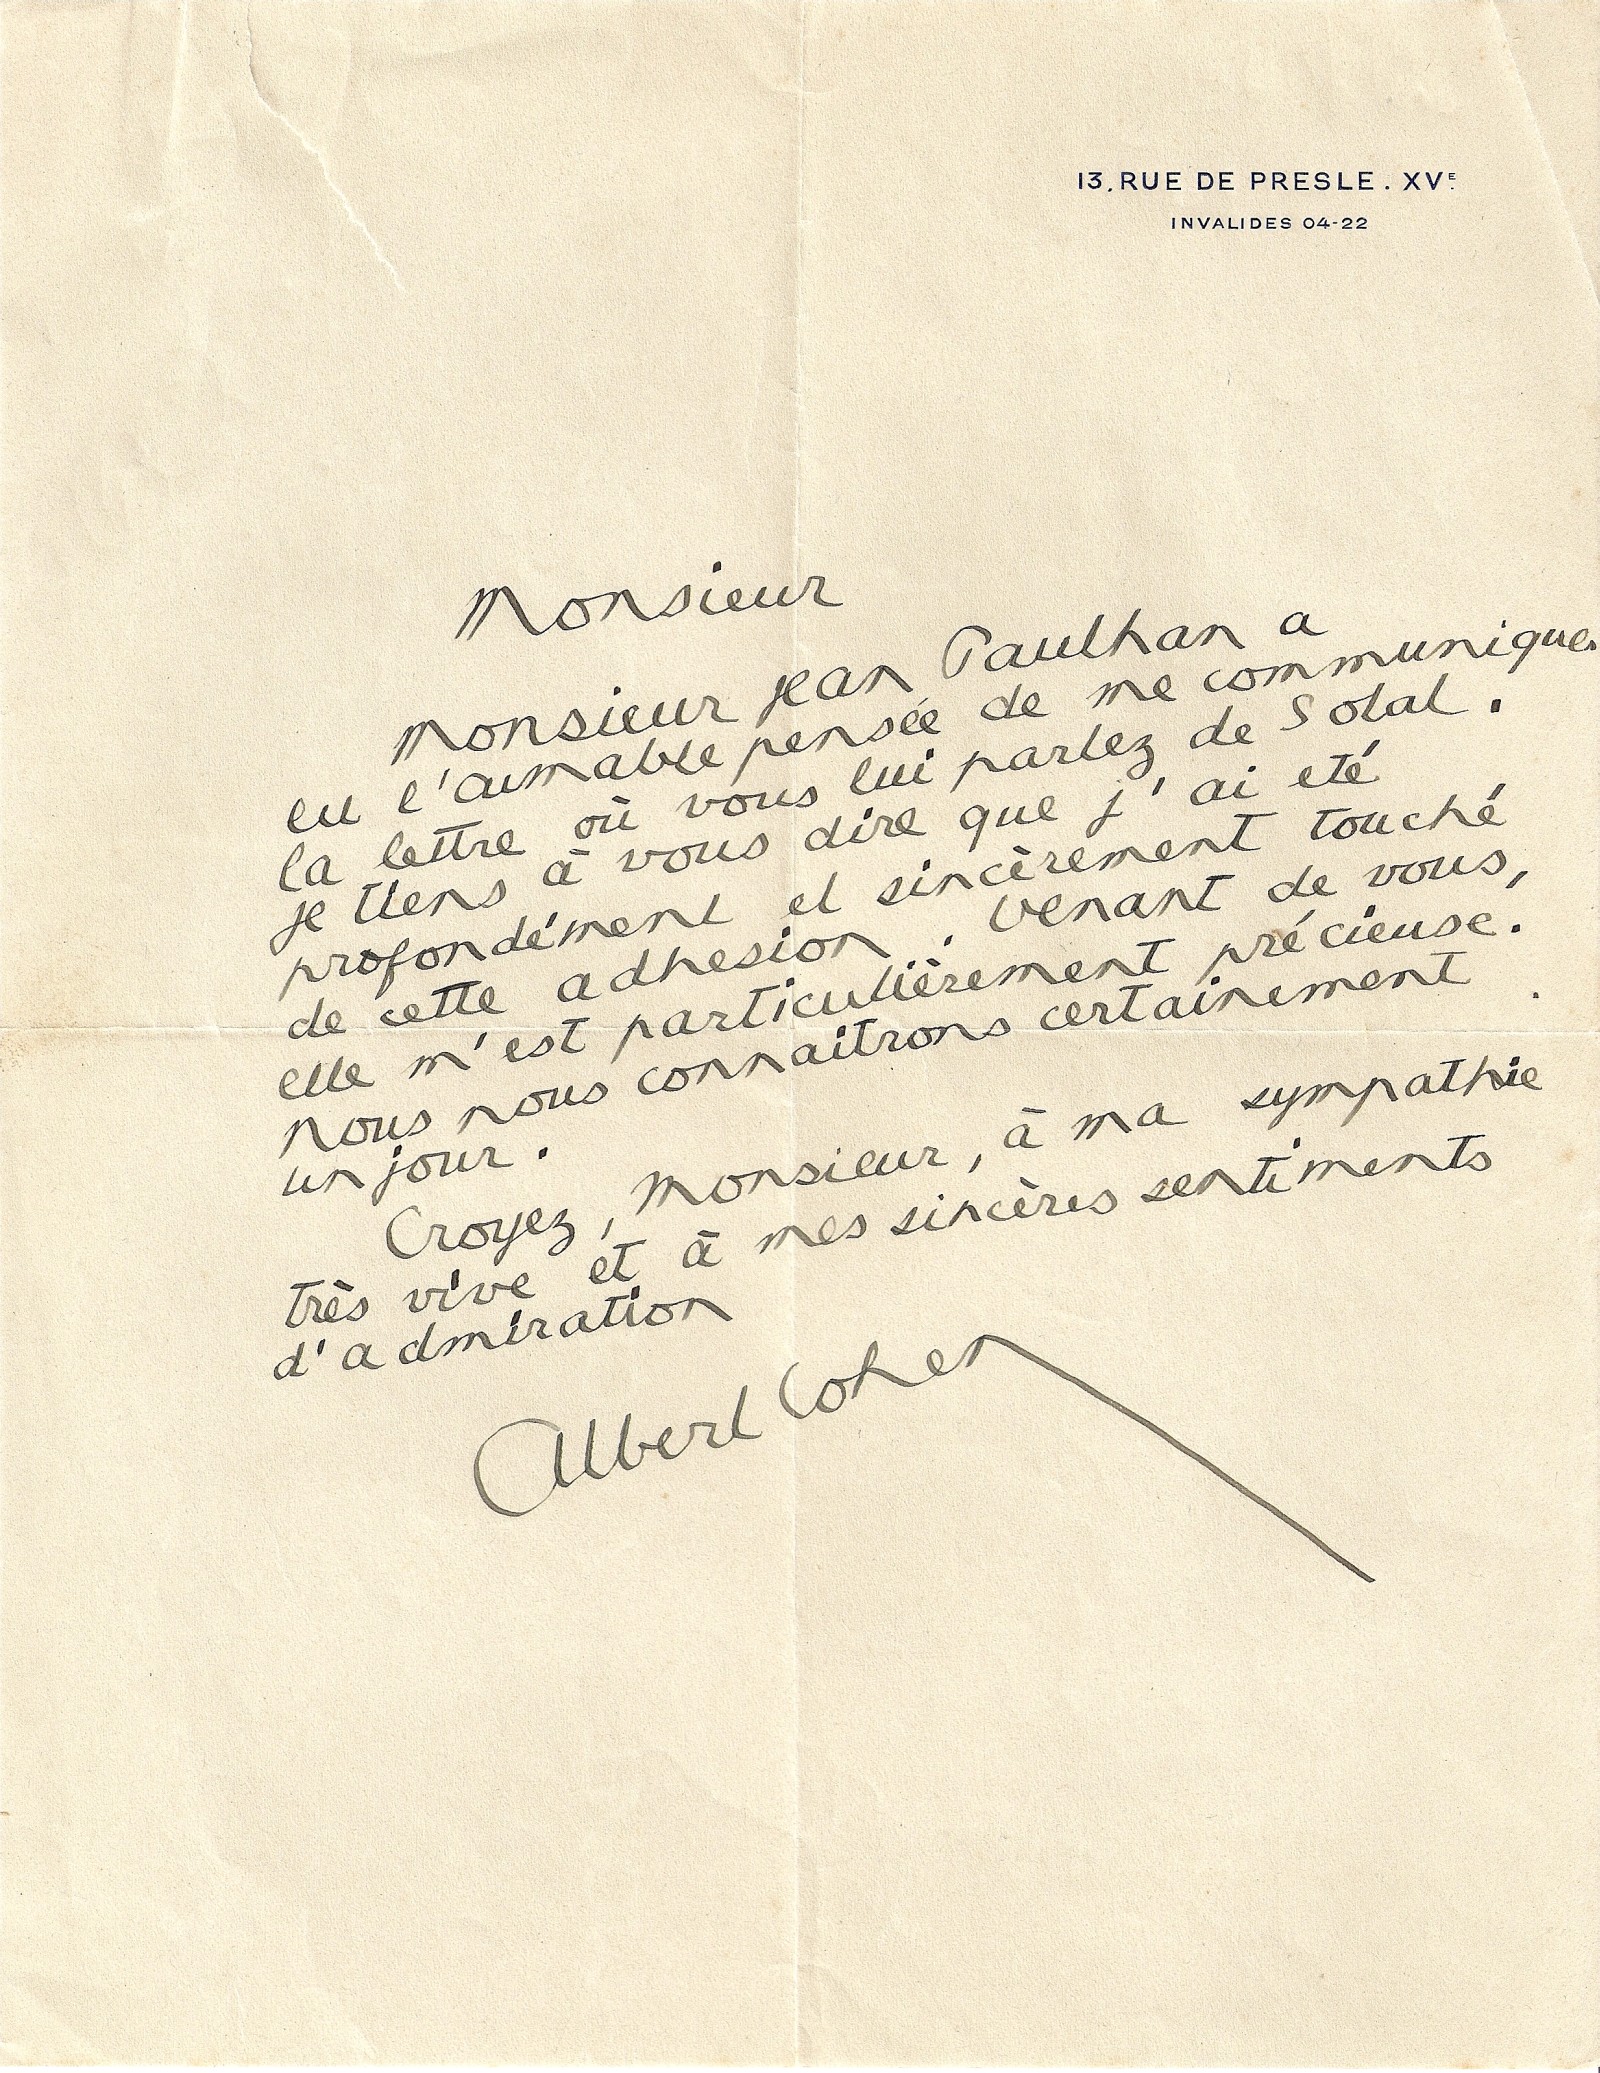 13, RUE DE PRESLE. XVE
INVALIDES 04-22
Monsieur
Monsieur Jean Paulhan a
eu l'aimable pensée de me communiquer
la lettre où vous lui parlez de Solal.
je tiens à vous dire que j'ai eté
profondément et sincèrement touché
de cette adhesion. Venant de vous,
elle m'est particulièrement précieuse.
Nous nous connaitrons certainement
un jour.
Croyez, Monsieur, à ma sympathie
très vive et à mes sincères sentiments
d'admiration
Albert Cohen